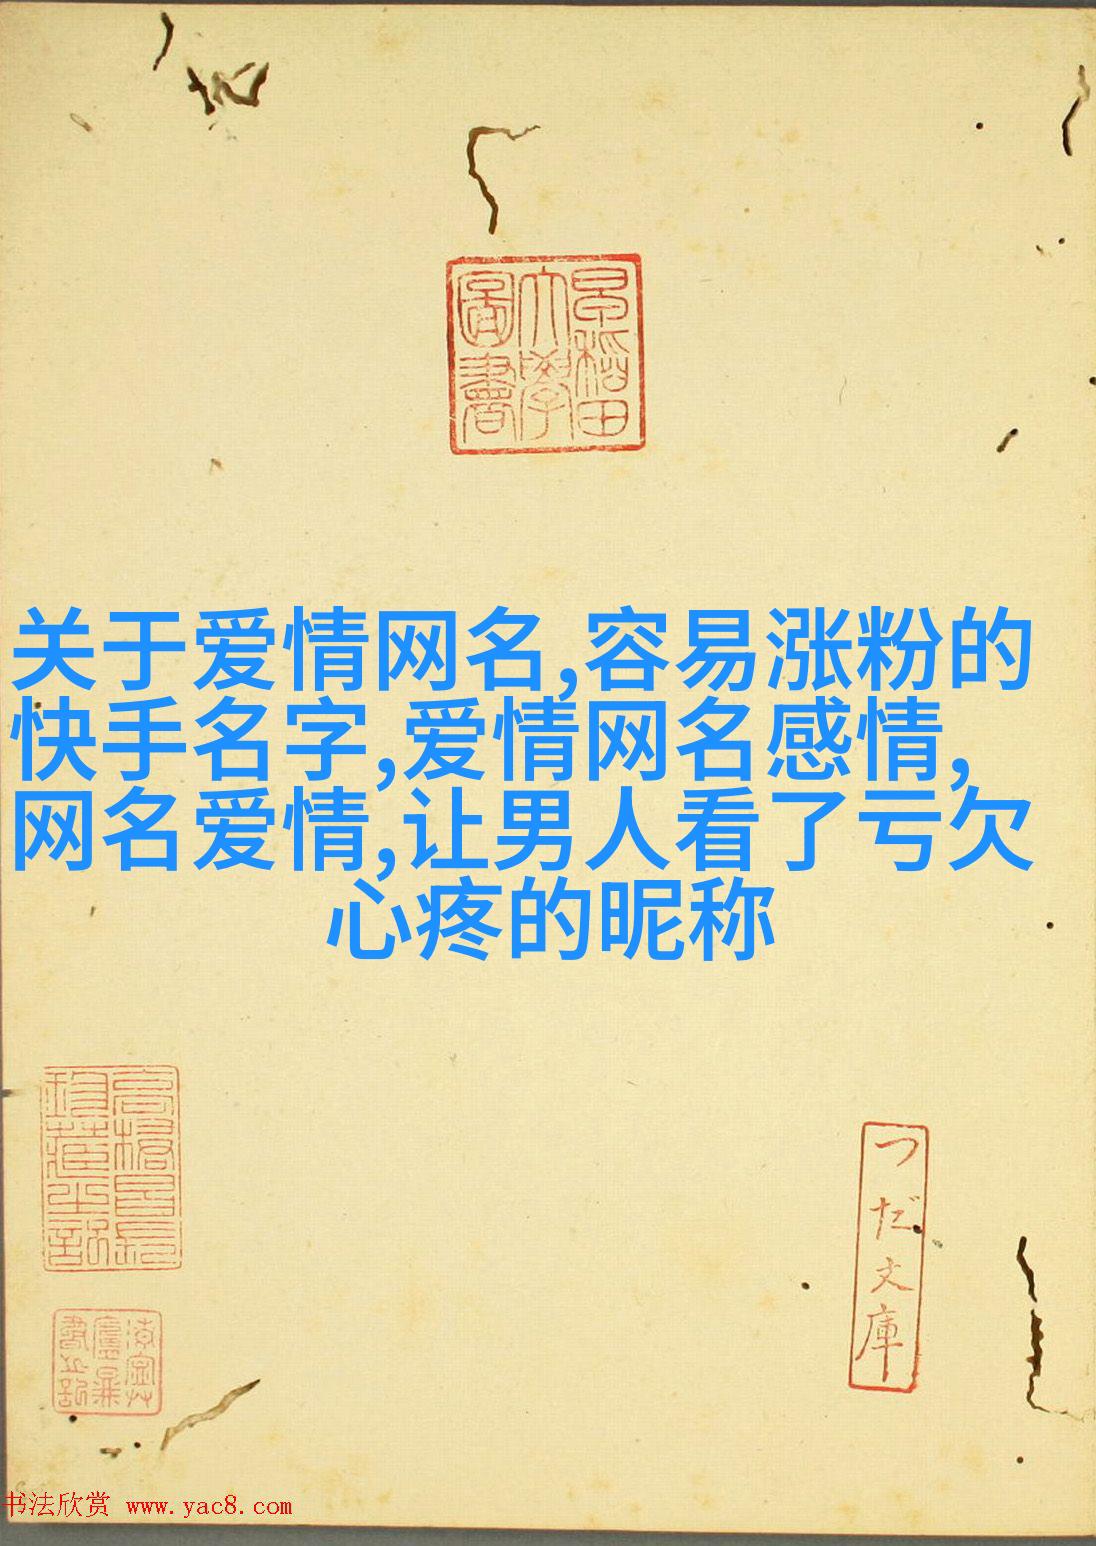 早稲田
大學
圖書
关于爱情网名,容易涨粉的
快手名字,爱情网名感情,
网名爱情,让男人看了亏欠
心疼的昵称
つだ文庫
书法欣赏 www.yac8.com